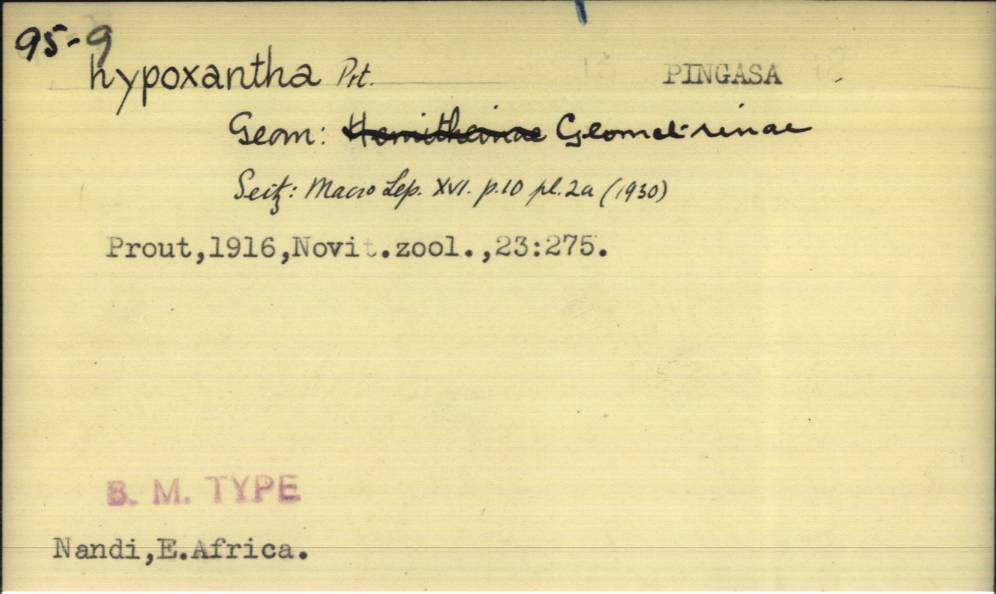 95-9
hypoxantha Prt. PINGASA
Geom: Hemitheinae Geometrinae
Seitz: Macro Lep. XVI. p.10 pl.2a (1930)
Prout,1916,Novit.zool.,23:275.
B. M. TYPE
Nandi,E.Africa.